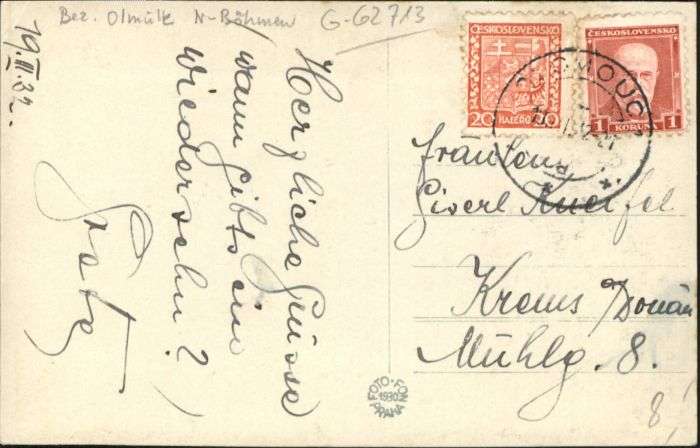 Bez. Olmütz N-Böhmen G-62713
19.II.32.
Herzliche Grüsse
wann gibts ein
wiedersehn?
ČESKOSLOVENSKO
20 HALÉŘŮ 20
ČESKOSLOVENSKO
1 KORUNA 1
OLOMOUC
Fräulein
Giserl
Krems a/Donau
Mühlg. 8.
FOTO-FON
1930
PRAHA
8,